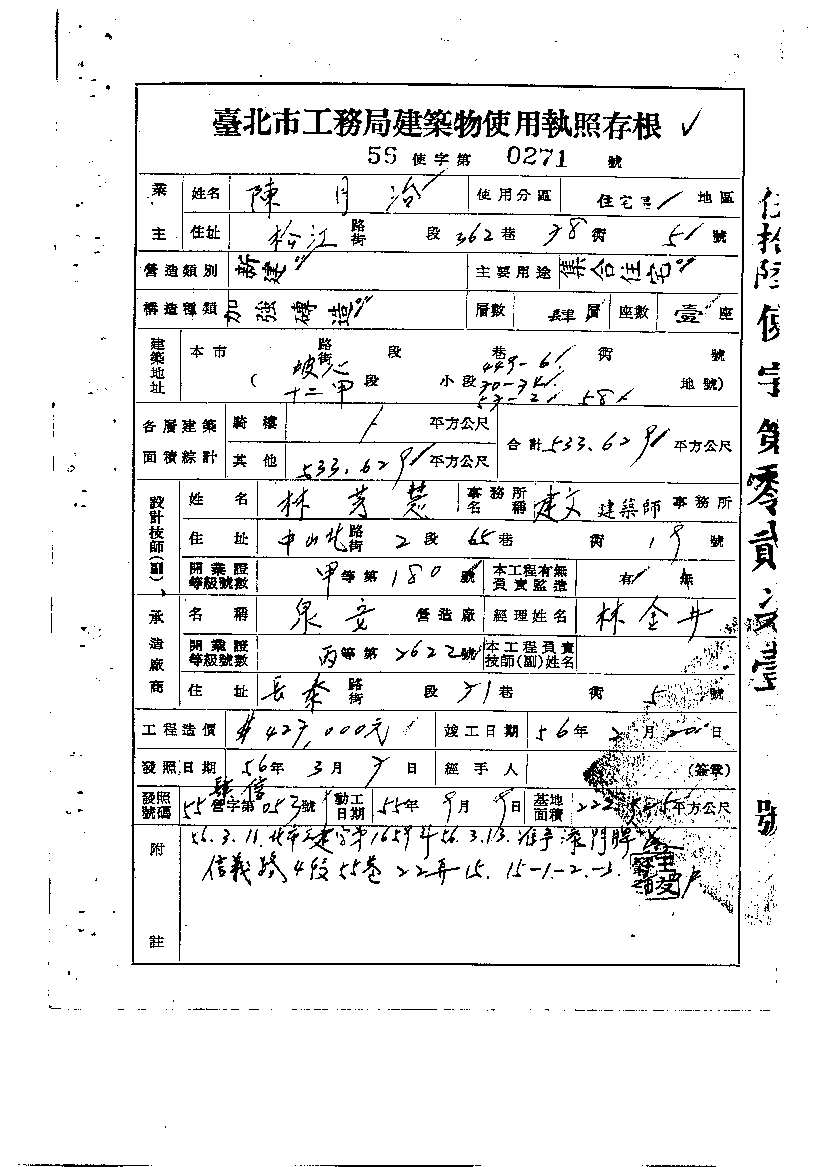 臺北市工務局建築物使用執照存根 ✓
56 使字第 0271 號
業主 姓名 陳月冶 使用分區 住宅區 地區
住址 松江 路街 段 362巷 38衖 51號
營造類別 新建 主要用途 集合住宅
構造種類 加強磚造 層數 肆層 座數 壹座
建築地址 本市 路街 段 巷 衖 號
(坡心 十二甲段 小段 449-6 70-34 57-2 58 地號)
各層建築面積綜計 騎樓 / 平方公尺 合計 533.629 平方公尺
其他 533.629 平方公尺
設計技師(副) 姓名 林芳慧 事務所名稱 建文 建築師事務所
住址 中山北 路街 2段 65巷 衖 19號
開業證等級號數 甲等第 180 號 本工程有無負責監造 有 無
承造廠商 名稱 泉安 營造廠 經理姓名 林金井
開業證等級號數 丙等第 2622號 本工程負責技師(副)姓名
住址 長泰 路街 段 71巷 衖 5號
工程造價 $427,000元 竣工日期 56年 2月 20日
發照日期 56年 3月 7日 經手人 (簽章)
發照號碼 55營字第053號 動工日期 55年 9月 9日 基地面積 平方公尺
附註 56.3.11.北市工建字第1659號 56.3.13.准予 門牌
信義路4段55巷22弄15. 15-1.-2.-3.
伍拾陸使字第零貳柒壹號